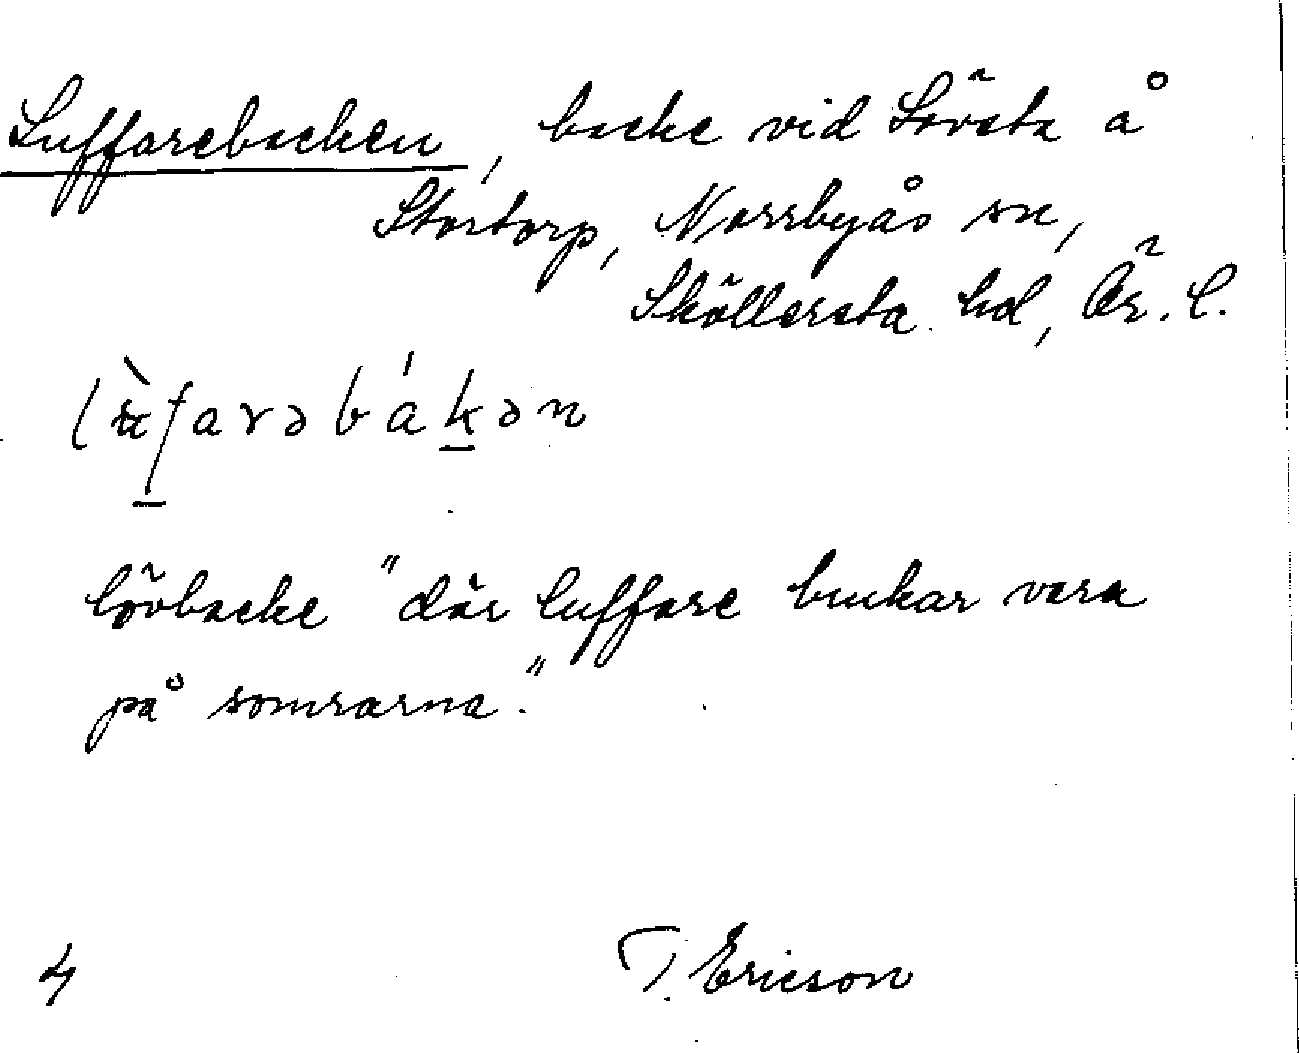 Luffarebacken, backe vid Lövsta å
Stortorp, Norrbyås sn,
Sköllersta hd, Ör. l.
lùfarəbákən
lövbacke "där luffare brukar vara
på somrarna."
4 T. Ericson